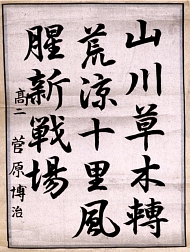 山川草木轉
荒涼十里風
腥新戰場
高二 菅原博治